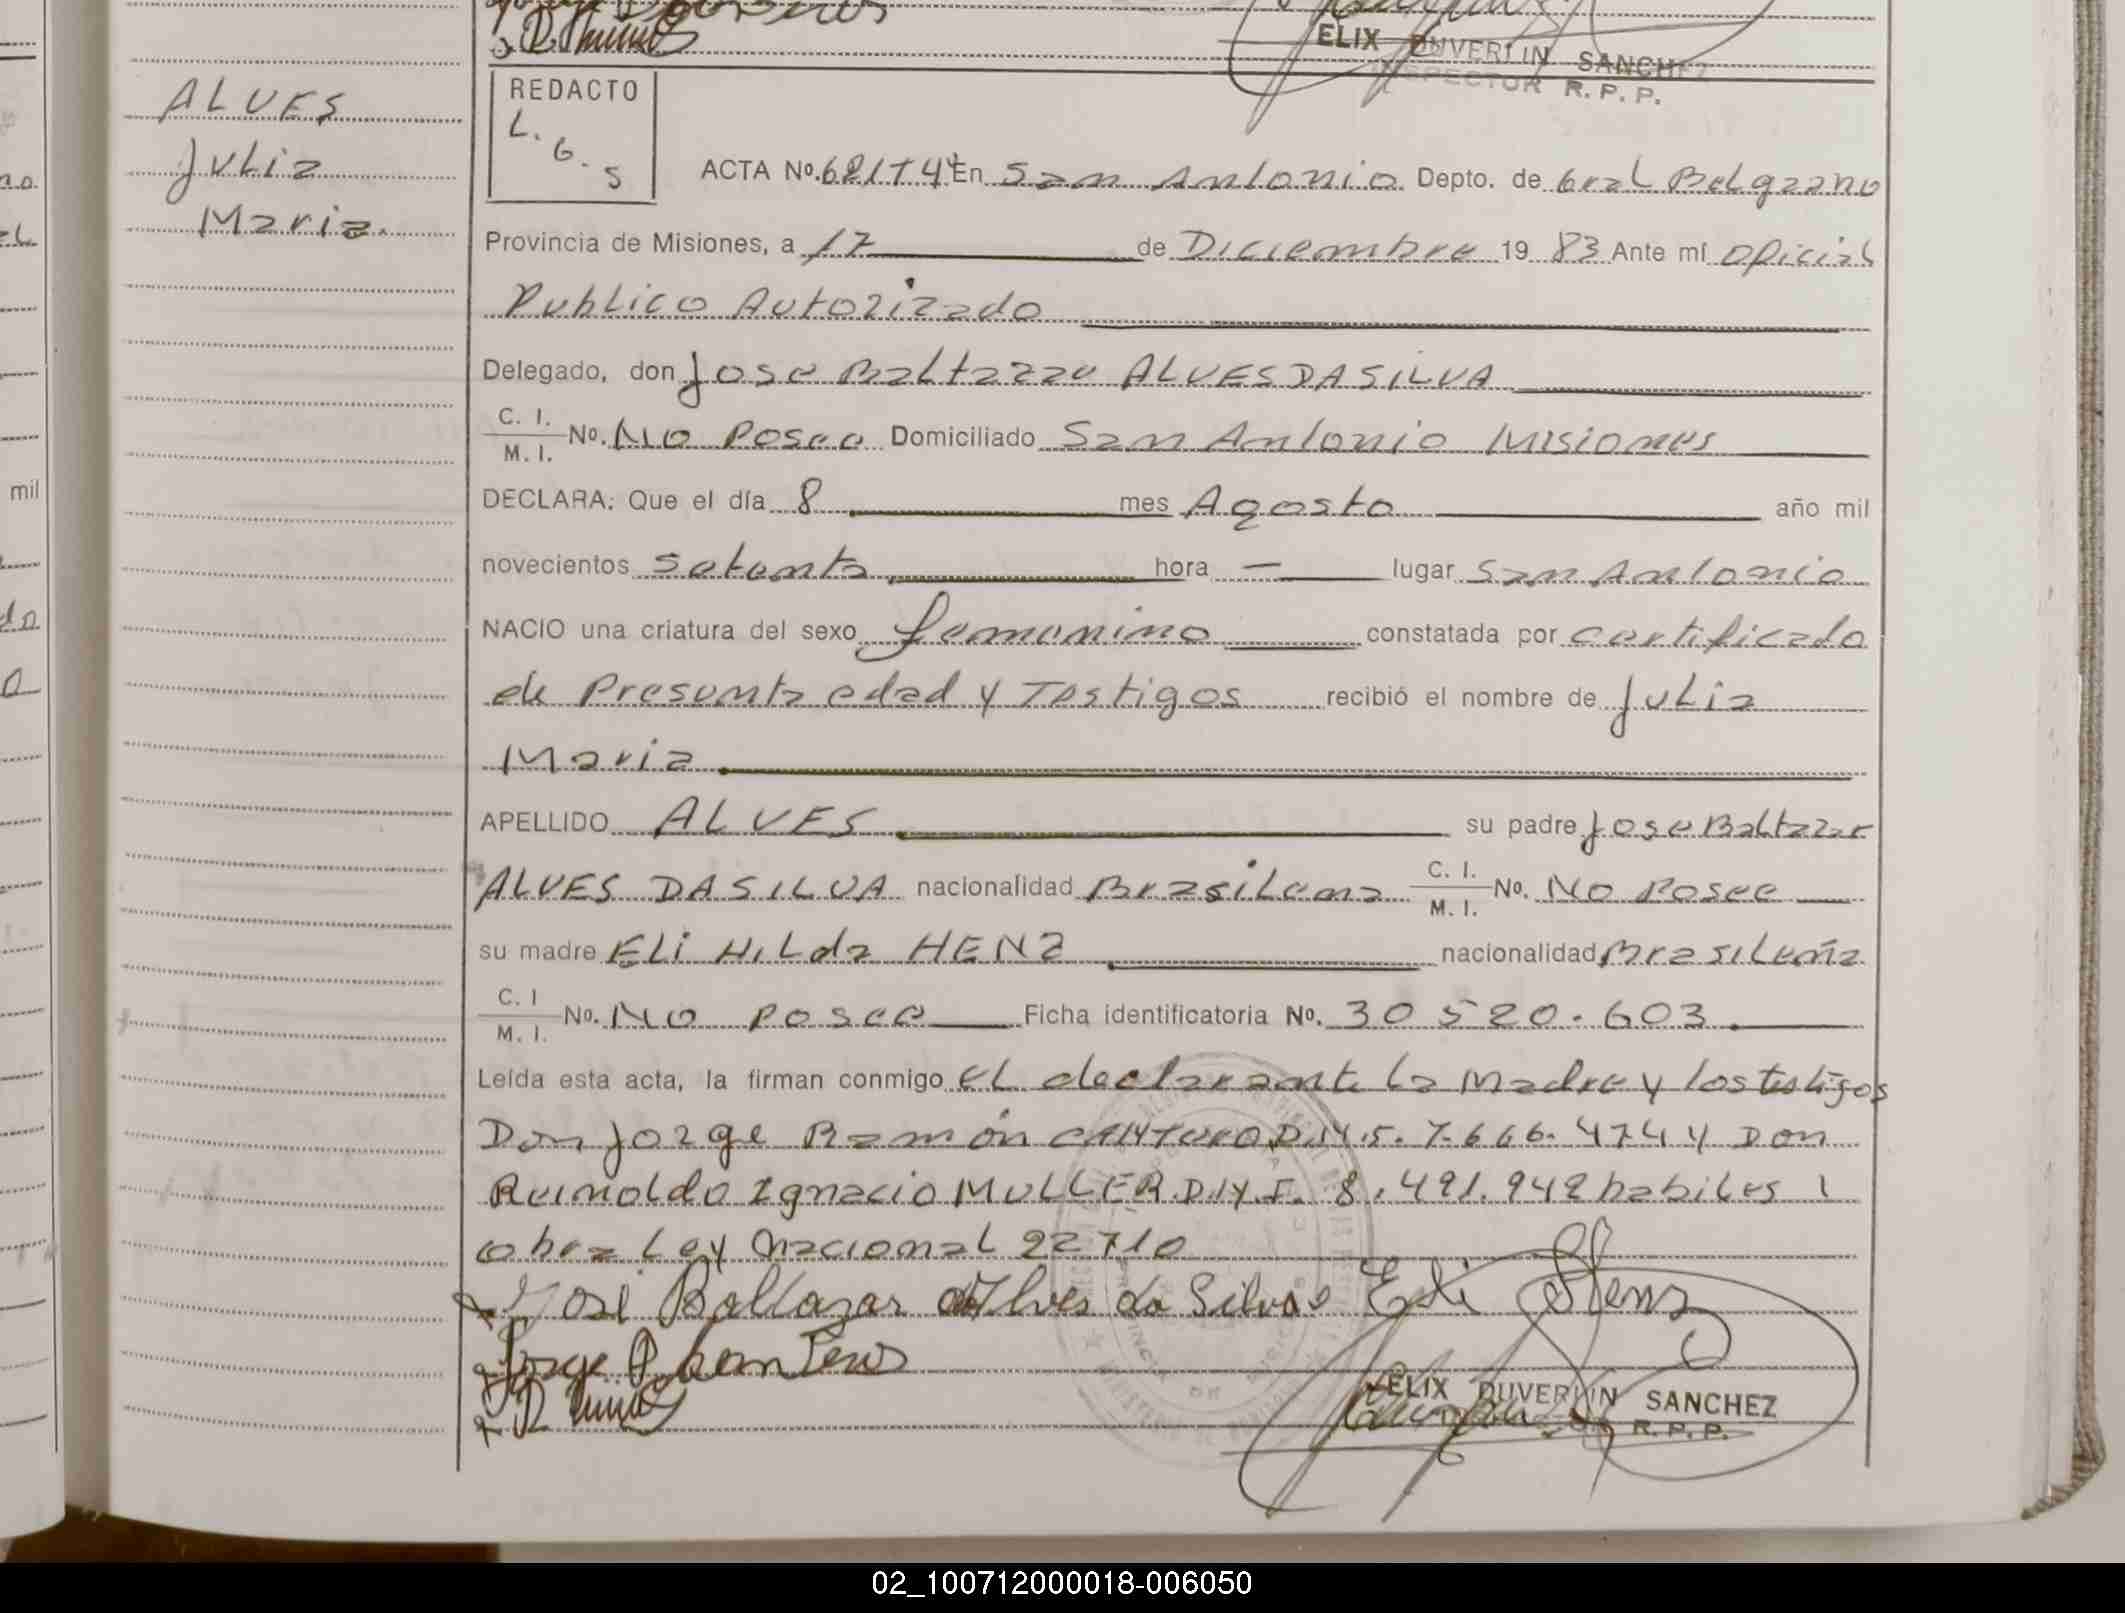 ELIX DUVERLIN SANCHEZ
INSPECTOR R. P. P.
ALVES
Julia
Maria.
REDACTO
L. G. S
ACTA No. 681T4º En San Antonio Depto. de Gral Belgrano
Provincia de Misiones, a 17 de Diciembre 19 83 Ante mí Oficial
Publico Autorizado
Delegado, don Jose Baltazar ALVES DA SILVA
C. I. / M. I. No. No Posee Domiciliado San Antonio Misiones
DECLARA: Que el día 8 mes Agosto año mil
novecientos setenta hora — lugar San Antonio
NACIO una criatura del sexo femenino constatada por certificado
de Presunta edad y Testigos recibió el nombre de Julia
Maria
APELLIDO ALVES su padre Jose Baltazar
ALVES DA SILVA nacionalidad Brasilena C. I. / M. I. No. No Posee
su madre Eli Hilda HENZ nacionalidad Brasileña
C. I / M. I. No. No posee Ficha identificatoria No. 30 520.603
Leída esta acta, la firman conmigo el declarante la Madre y los testigos
Don Jorge Ramón D.N.I. 7.666.474 y Don
Reinoldo Ignacio MULLER D.N.I. 8.491.942 habiles
obra Ley Nacional 22710
José Baltazar Alves da Silva Eli Henz
Jorge R
ELIX DUVERLIN SANCHEZ
R. P. P.
mil
02_100712000018-006050